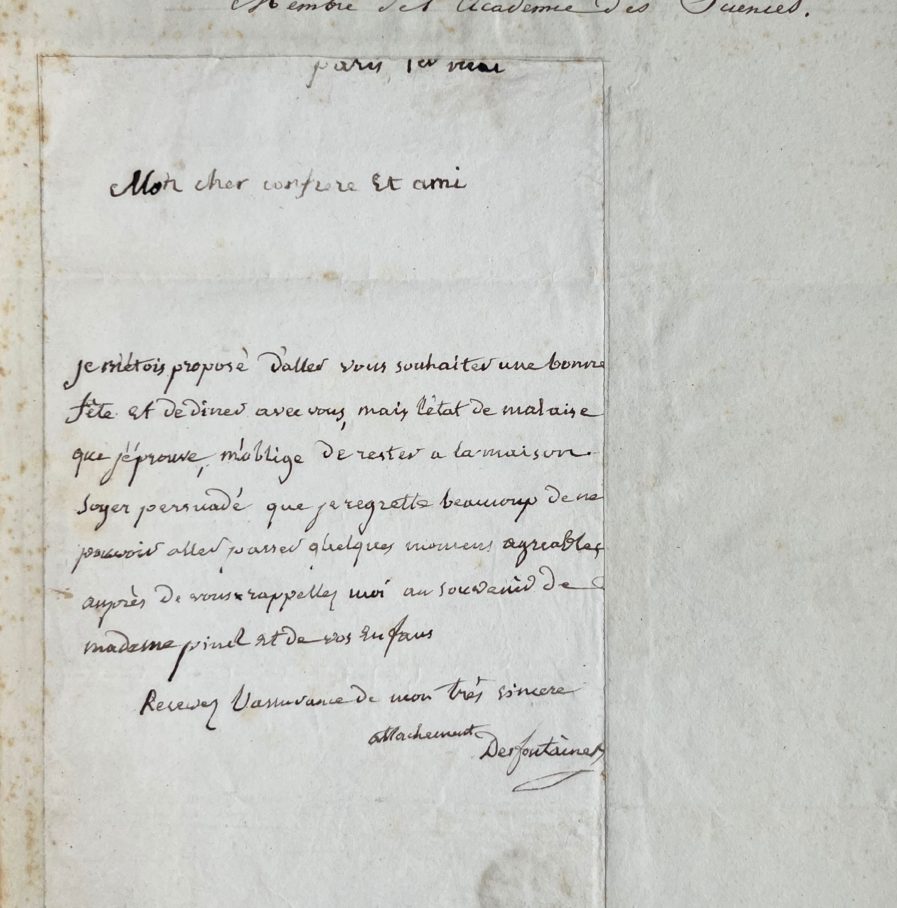 Membre de l'Academie des Sciences.
paris, 1er mai
Mon cher confrere Et ami
je m'étois proposé d'aller vous souhaiter une bonne
fête Et de diner avec vous, mais l'état de malaise
que j'éprouve, m'oblige de rester a la maison.
soyez persuadé que je regrette beaucoup de ne
pouvoir aller passer quelques momens agreables
auprès de vous rappellez moi au souvenir de
madame pinel Et de vos Enfans
Recevez l'assurance de mon très sincere
attachement
Desfontaines